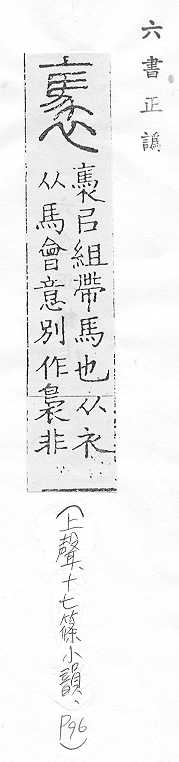 六書正譌
褭
褭㠯組帶馬也从衣
从馬會意別作裊非
(上聲、十七篠小韻、P96)